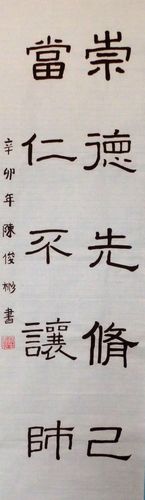 崇德先脩己
當仁不讓師
辛卯年陳俊彬書